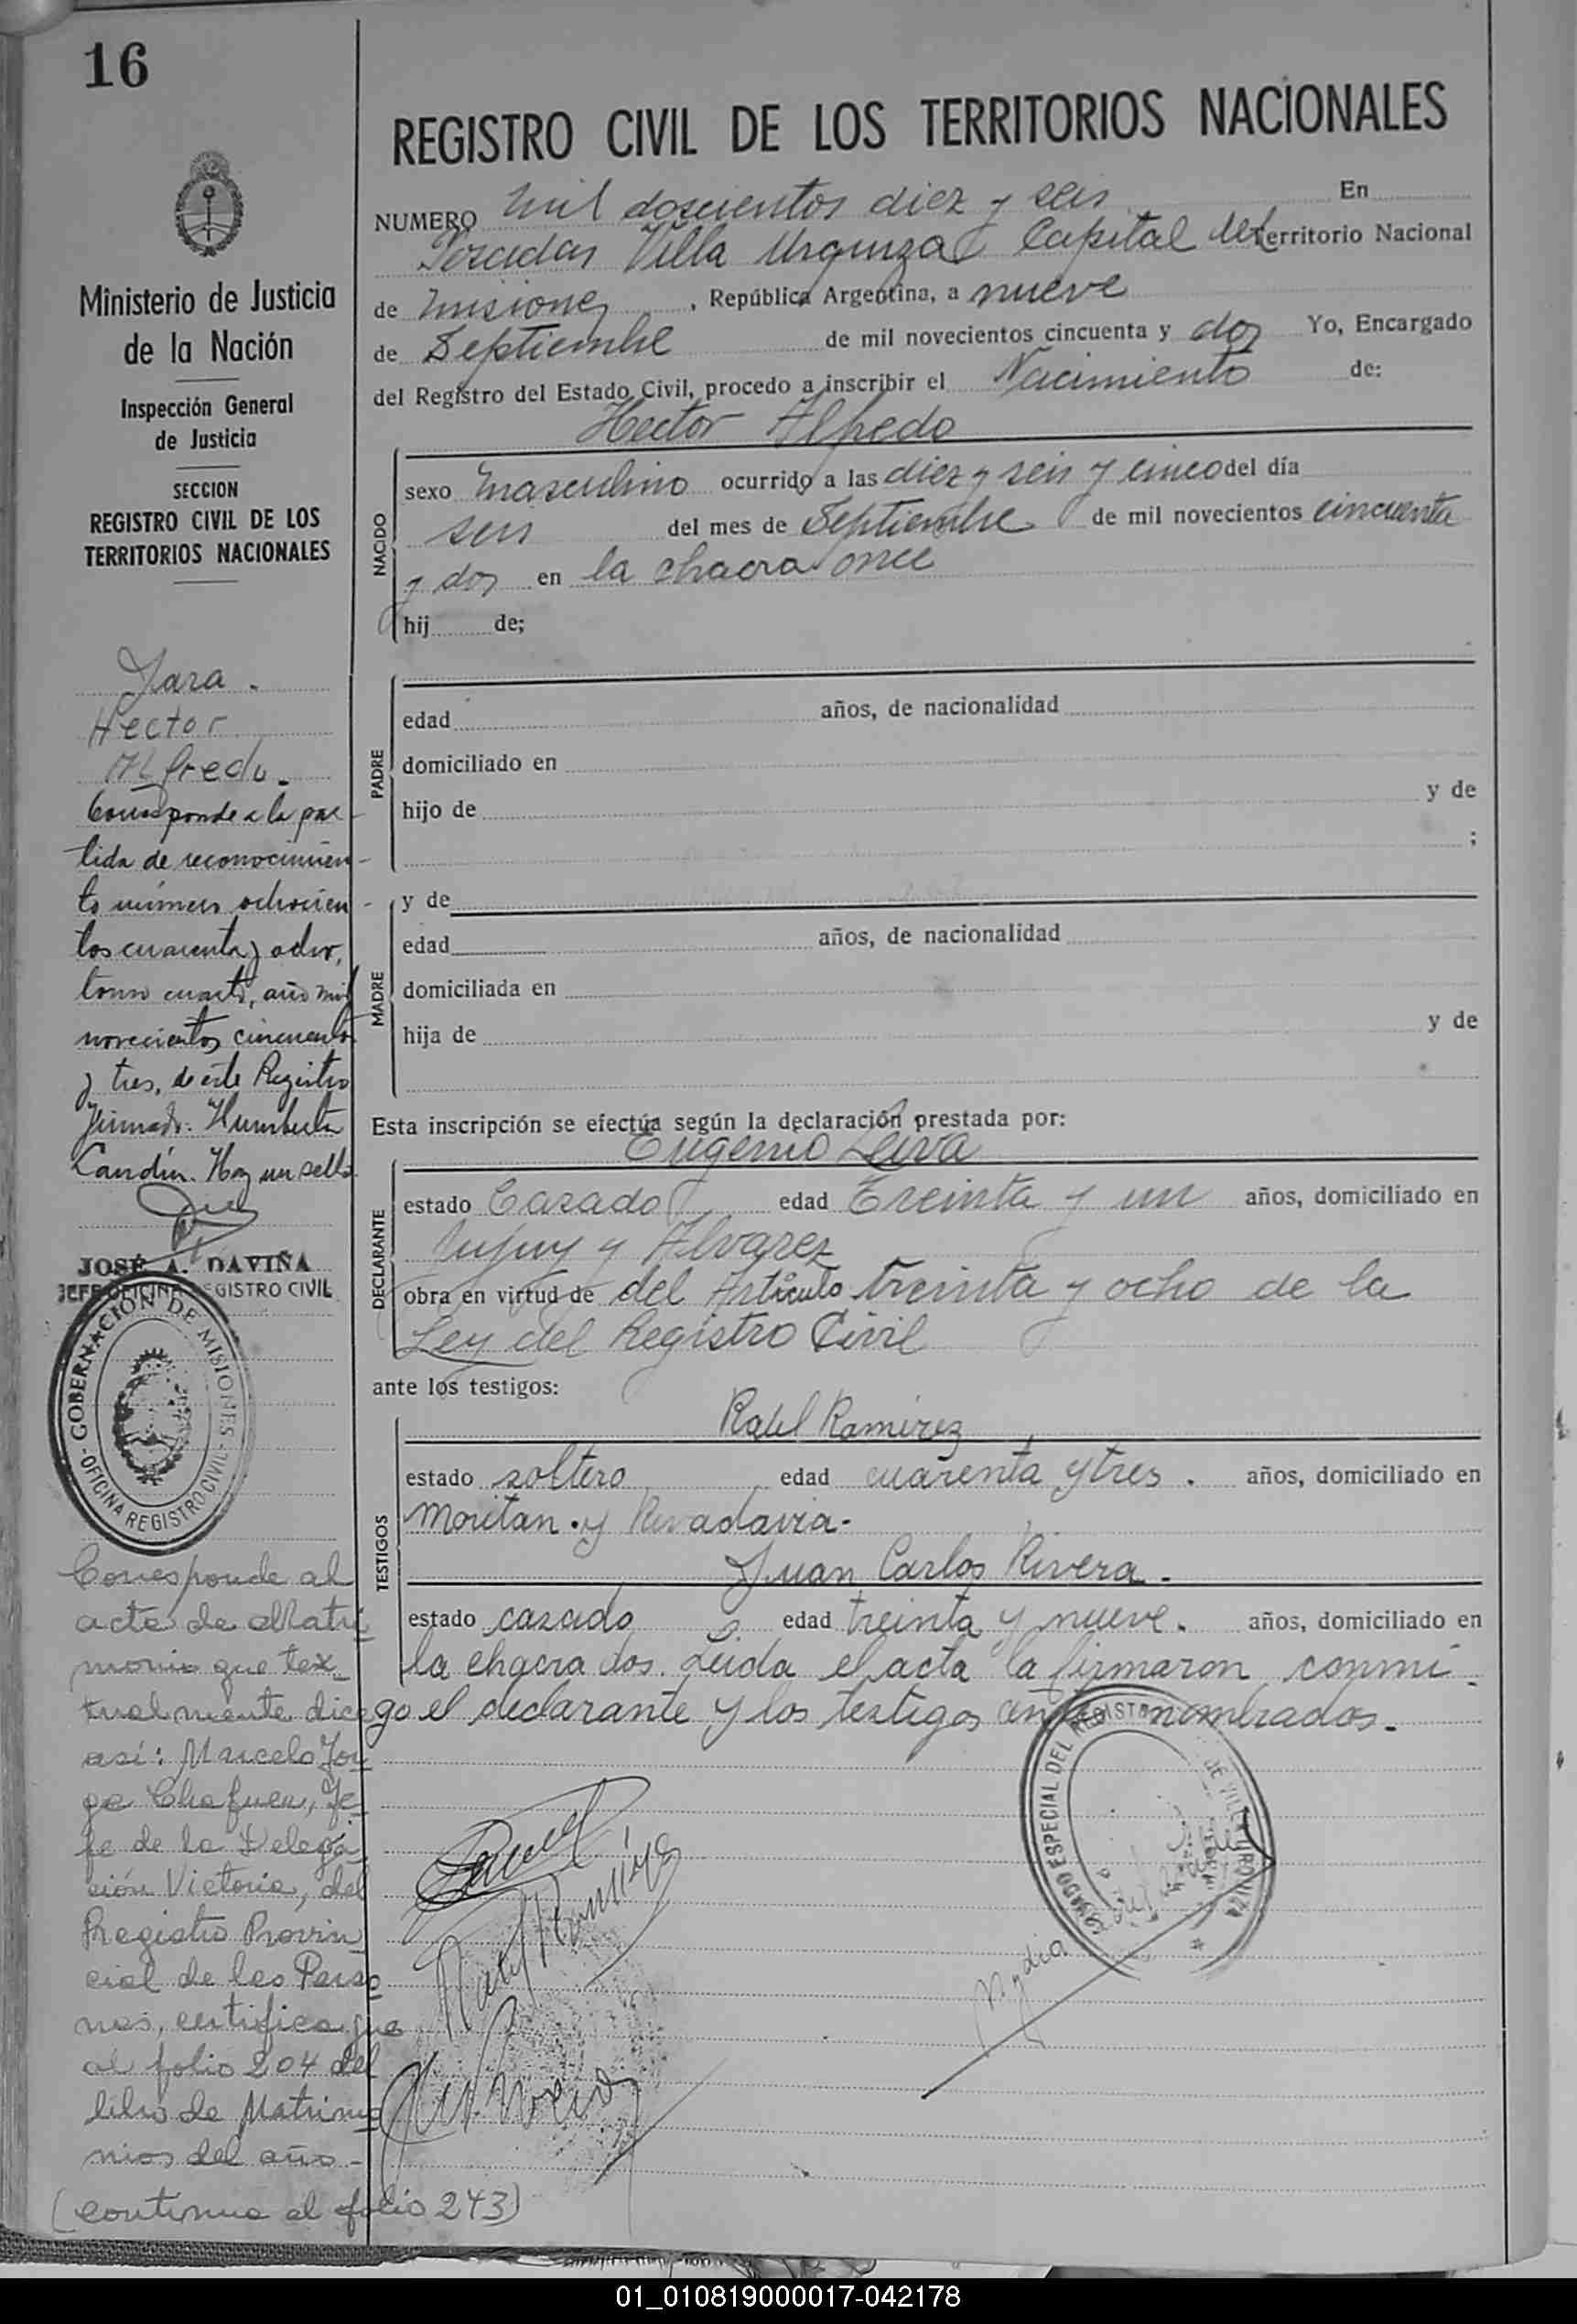 16
Ministerio de Justicia
de la Nación
Inspección General
de Justicia
SECCION
REGISTRO CIVIL DE LOS
TERRITORIOS NACIONALES
Jara.
Hector
Alfredo.
Corresponde a la par-
tida de reconocimien-
to número ochocien-
tos cuarenta y ocho,
tomo cuarto, año mil
novecientos cincuenta
y tres, de este Registro
Firmado: Humberto
Landín. Hay un sello
JOSÉ A. DAVIÑA
JEFE OFICINA REGISTRO CIVIL
GOBERNACION DE MISIONES
OFICINA REGISTRO CIVIL
Corresponde al
acta de Matri
monio que tex
tualmente dice
así: Marcelo Jor
ge Chafuen, Je
fe de la Delega
ción Victoria, del
Registro Provin
cial de las Perso
nas, certifica que
al folio 204 del
libro de Matrimo
nios del año -
(continua al folio 243)
REGISTRO CIVIL DE LOS TERRITORIOS NACIONALES
NUMERO mil doscientos diez y seis En
Posadas Villa Urquiza Capital del territorio Nacional
de Misiones, República Argentina, a nueve
de Septiembre de mil novecientos cincuenta y dos Yo, Encargado
del Registro del Estado Civil, procedo a inscribir el Nacimiento de:
Hector Alfredo
NACIDO
sexo masculino ocurrido a las diez y seis y cinco del día
seis del mes de Septiembre de mil novecientos cincuenta
y dos en la chacra once
hij de;
PADRE
edad años, de nacionalidad
domiciliado en
hijo de y de
;
MADRE
y de
edad años, de nacionalidad
domiciliada en
hija de y de
Esta inscripción se efectúa según la declaración prestada por:
Eugenio Leiva
DECLARANTE
estado Casado edad Treinta y un años, domiciliado en
Jujuy y Alvarez
obra en virtud de del Artículo treinta y ocho de la
Ley del Registro Civil
ante los testigos:
TESTIGOS
Raul Ramirez
estado soltero edad cuarenta y tres. años, domiciliado en
Moritan y Rivadavia.
Juan Carlos Rivera.
estado casado edad treinta y nueve. años, domiciliado en
la chacra dos. Leida el acta la firmaron conmi
go el declarante y los testigos antes nombrados.
ESPECIAL DEL REGISTRO
01_010819000017-042178